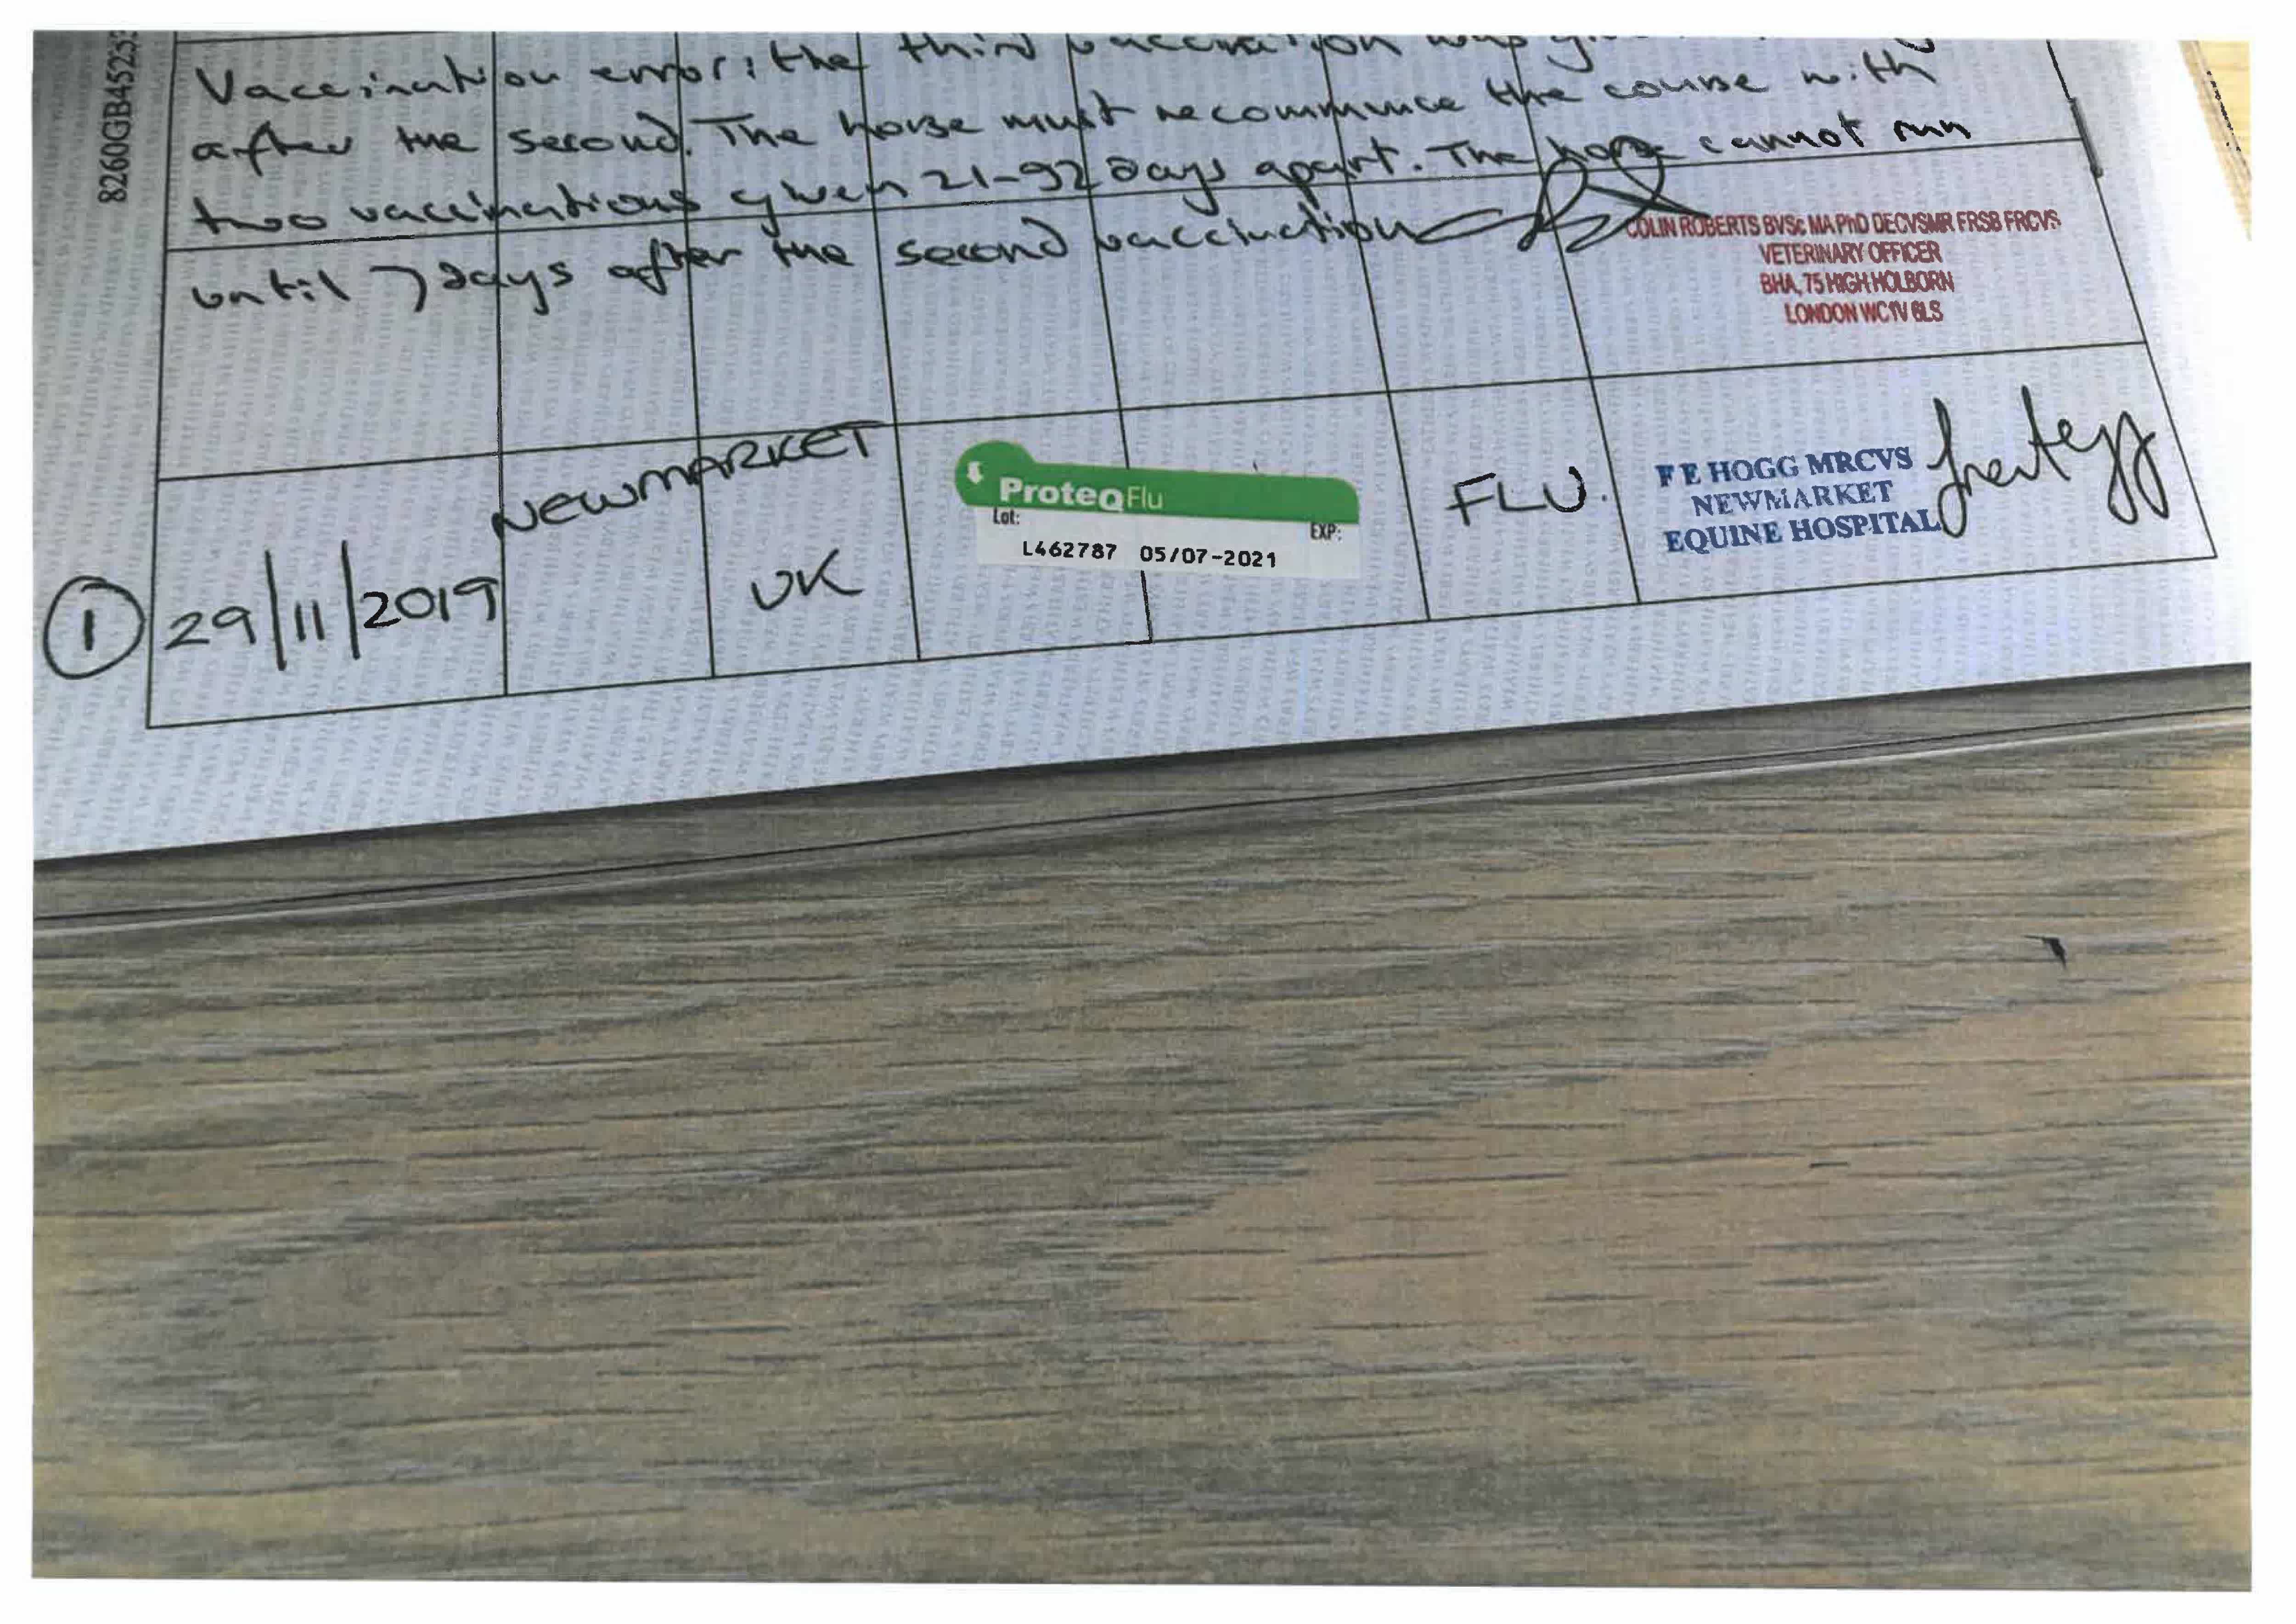 8260GB45253
Vaccination error: the third vaccination was
after the second. The horse must recommence the course with
two vaccinations given 21-92 days apart. The horse cannot run
until 7 days after the second vaccination
COLIN ROBERTS BVSc MA PhD DECVSMR FRSB FRCVS
VETERINARY OFFICER
BHA, 75 HIGH HOLBORN
LONDON WC1V 6LS
1 29/11/2019 NEWMARKET UK
ProteqFlu
Lot: EXP:
L462787 05/07-2021
FLU.
F E HOGG MRCVS
NEWMARKET
EQUINE HOSPITAL